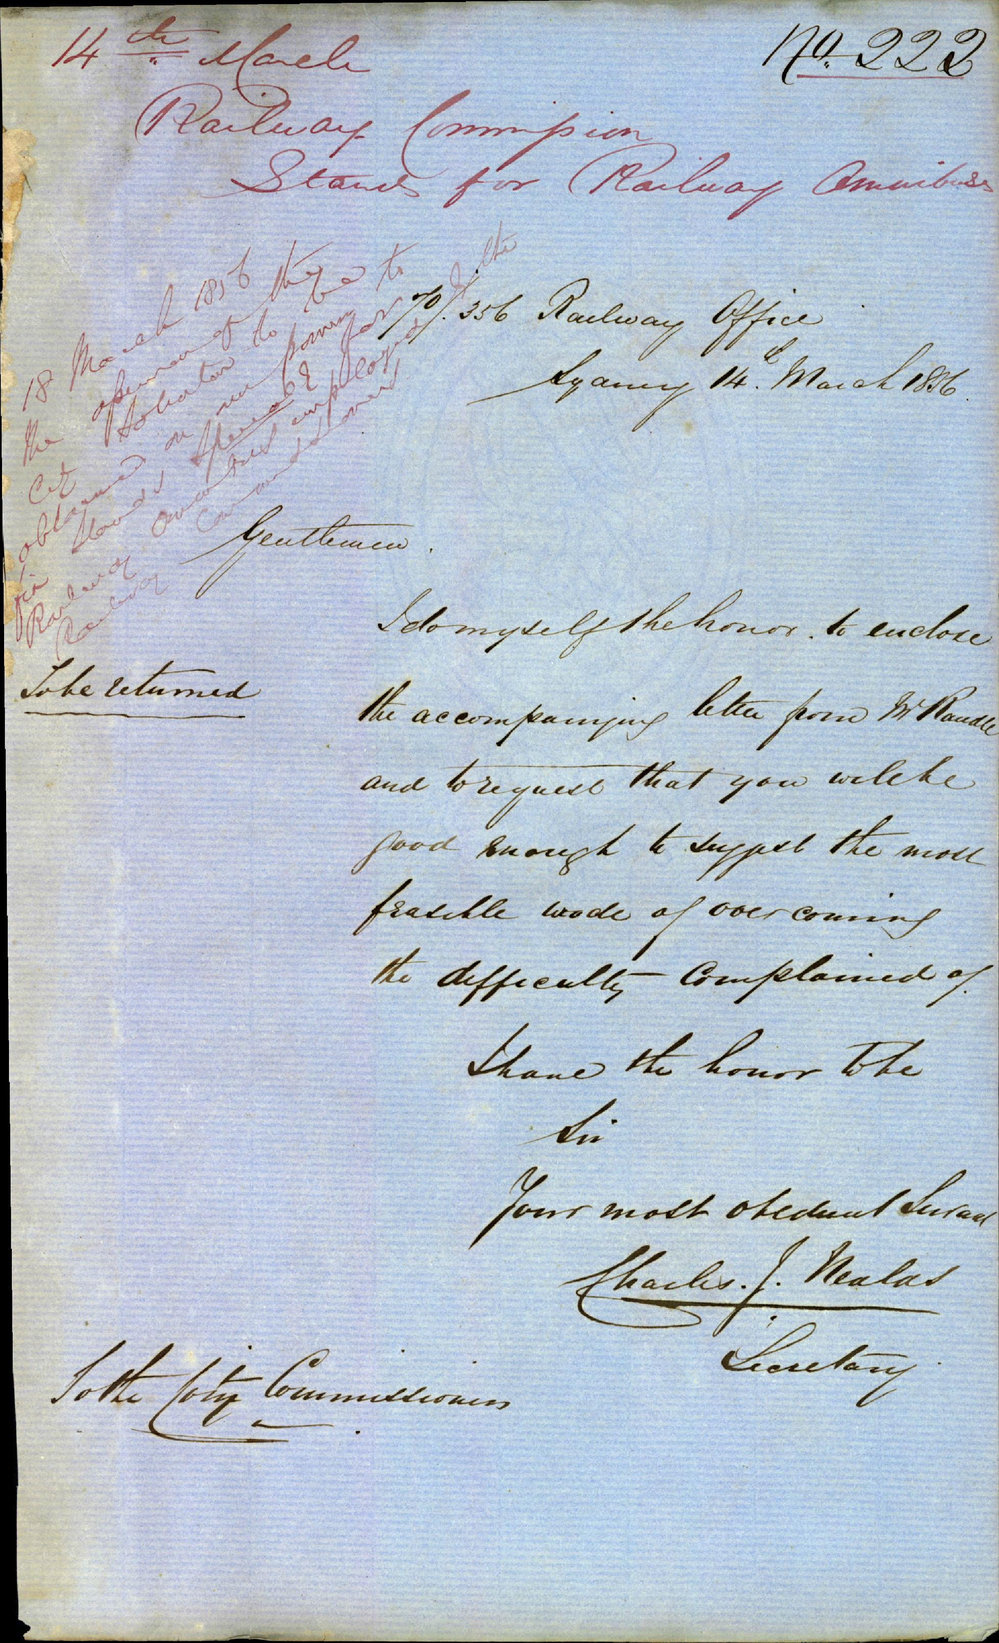 14th March
No. 222
Railway Commission
Stands for Railway Omnibuses
18 March 1856
the opinion of the
City Solicitor to be
obtained on our power to
fix stands specially for
Railway omnibuses employed by the
Railway Commissioners
70/. 356 Railway Office
Sydney 14th March 1856.
Gentlemen.
I do myself the honor to enclose
To be returned
the accompanying letter from Mr Randle
and to request that you will be
good enough to suggest the most
feasible mode of overcoming
the difficulty complained of.
I have the honor to be
Sir
Your most obedient Servant
Charles. J. Nealds
Secretary
To the City Commissioners